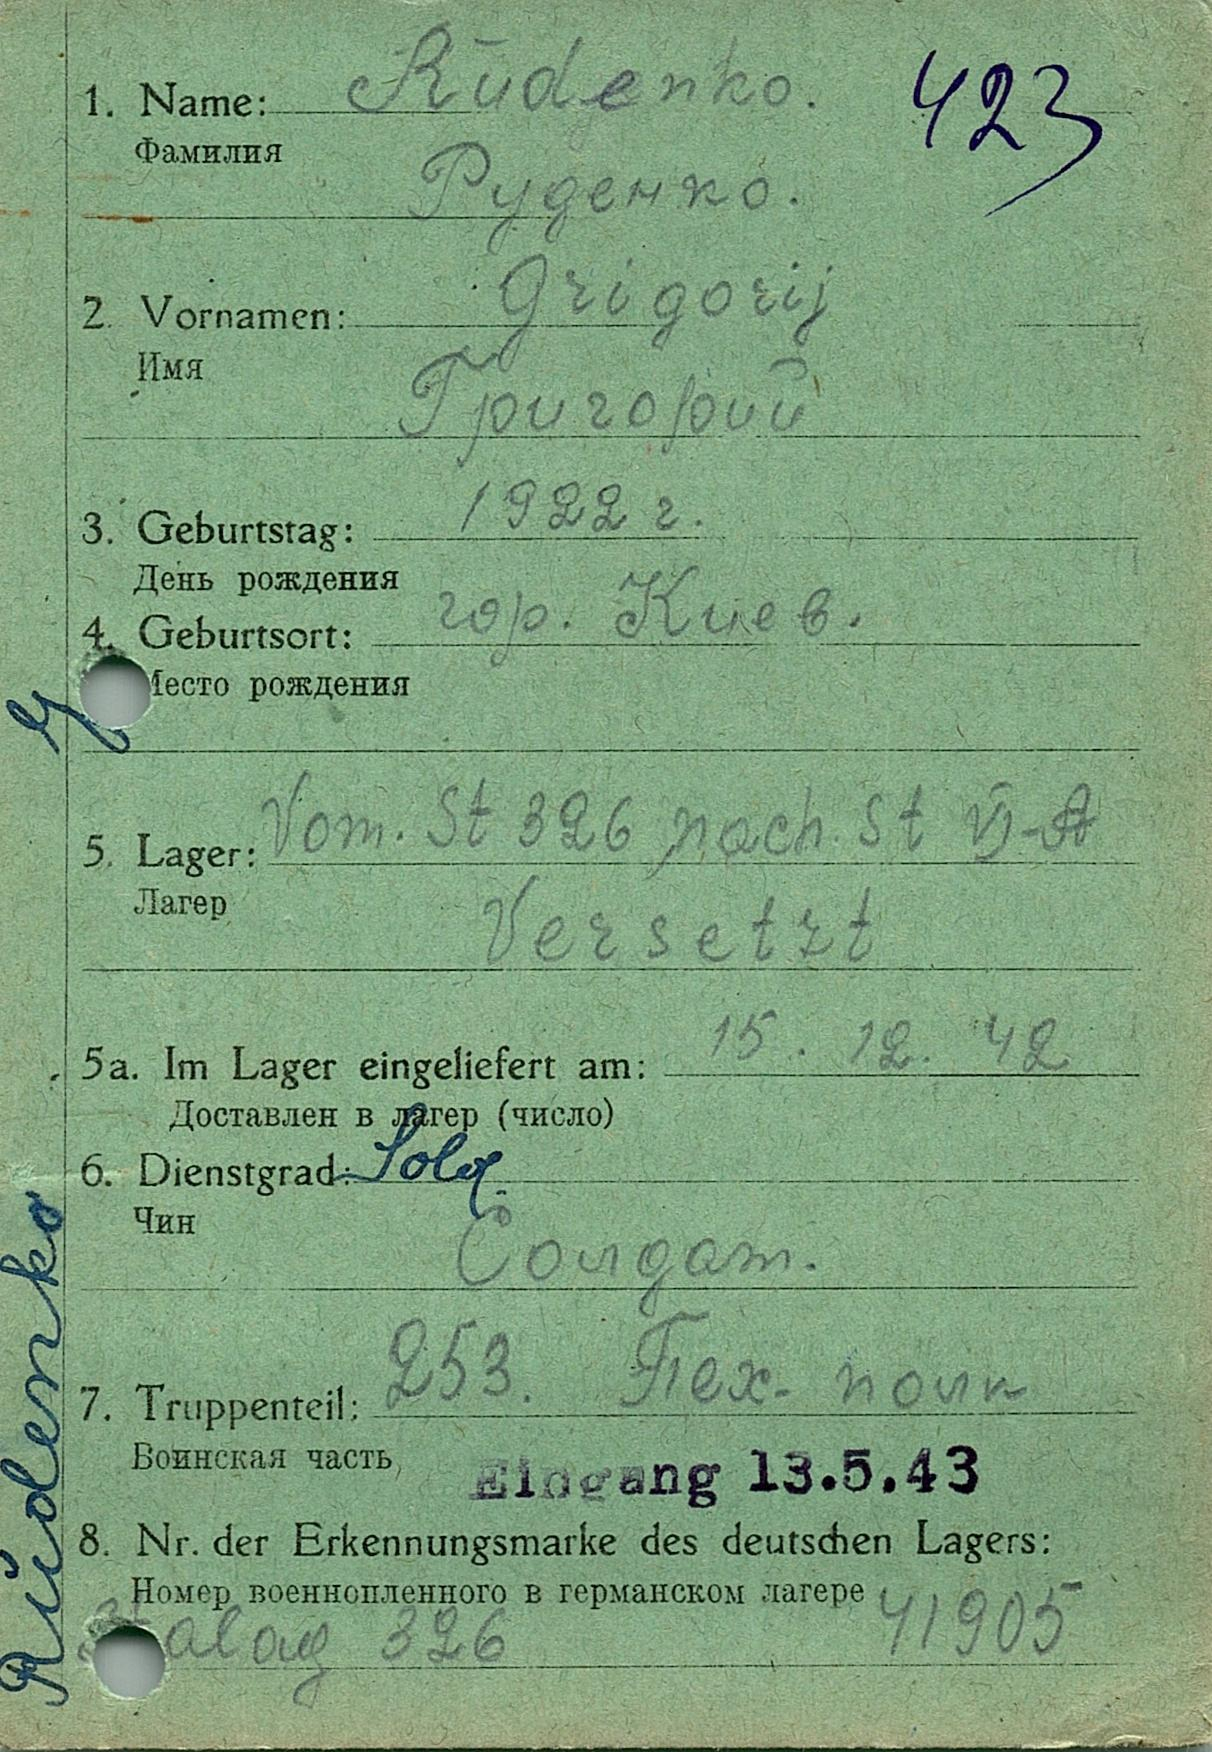 1. Name: Rŭdenko.
423
Фамилия
Руденко.
2. Vornamen: Grigorij
Имя
Григорий
3. Geburtstag: 1922 г.
День рождения
4. Geburtsort: гор. Киев.
Место рождения
5. Lager: Vom. St 326 nach. St VI-A
Лагер
Versetzt
5a. Im Lager eingeliefert am: 15. 12. 42
Доставлен в лагер (число)
6. Dienstgrad: Sold.
Чин
Солдат.
7. Truppenteil: 253. Пех. полк
Воинская часть
Eingang 13.5.43
8. Nr. der Erkennungsmarke des deutschen Lagers:
Номер военнопленного в германском лагере 41905
Stalag 326
Rŭdenko